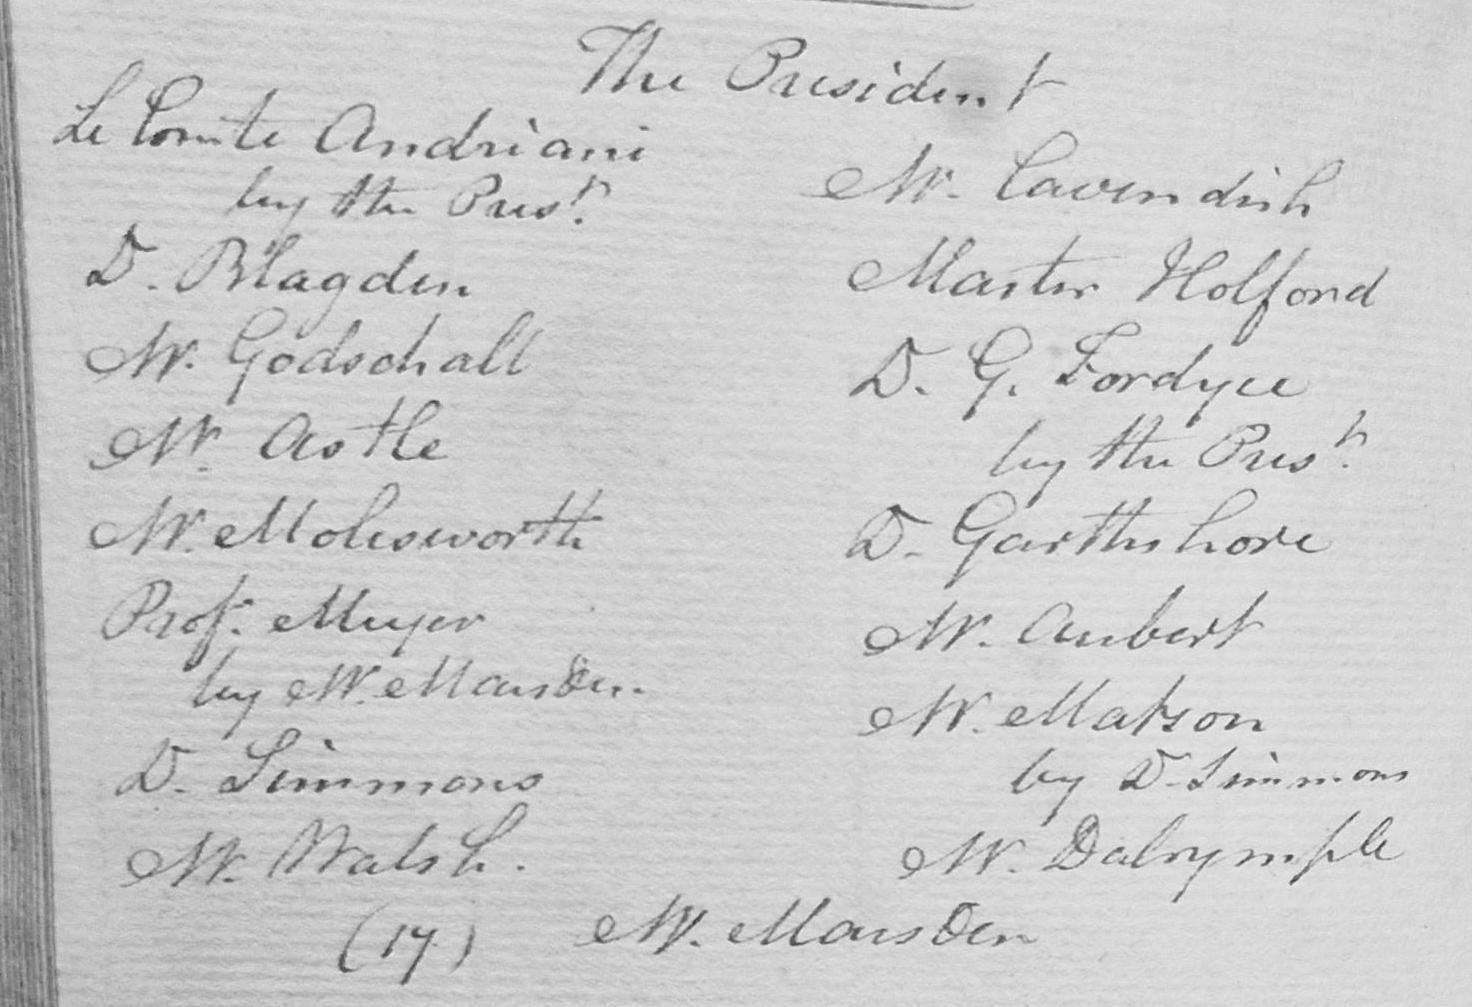 The President
Le Comte Andriani
by the Prest.
D. Blagden
Mr. Godschall
Mr. Astle
Mr. Molesworth
Prof. Meyer
by Mr. Marsden.
D. Simmons
Mr. Walsh.
Mr. Cavendish
Master Holford
D. G. Fordyce
by the Prest.
D. Garthshore
Mr. Aubert
Mr. Matson
by D. Simmons
Mr. Dalrymple
(17) Mr. Marsden